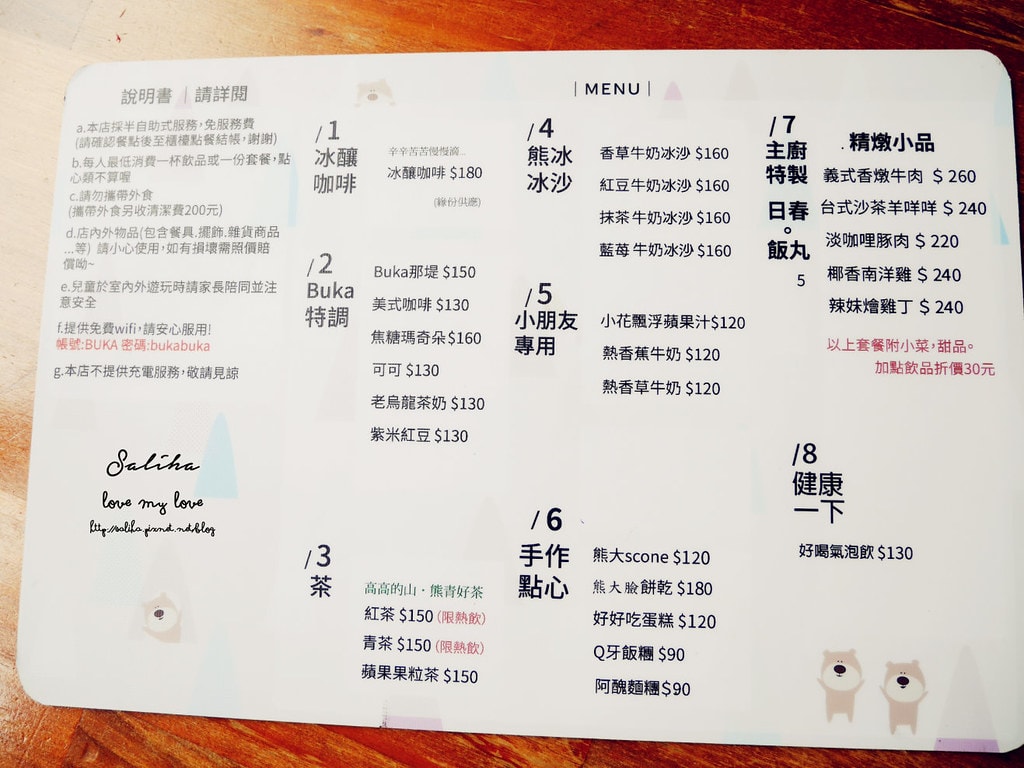 說明書｜請詳閱
a.本店採半自助式服務,免服務費
(請確認餐點後至櫃檯點餐結帳,謝謝)
b.每人最低消費一杯飲品或一份套餐,點
心類不算喔
c.請勿攜帶外食
(攜帶外食另收清潔費200元)
d.店內外物品(包含餐具.擺飾.雜貨商品
...等) 請小心使用,如有損壞需照價賠
償呦~
e.兒童於室內外遊玩時請家長陪同並注
意安全
f.提供免費wifi,請安心服用!
帳號:BUKA 密碼:bukabuka
g.本店不提供充電服務,敬請見諒
Saliha
love my love
http://saliha.pixnet.net/blog
|MENU|
/1
冰釀
咖啡
辛辛苦苦慢慢滴...
冰釀咖啡 $180
(緣份供應)
/2
Buka
特調
Buka那堤 $150
美式咖啡 $130
焦糖瑪奇朵 $160
可可 $130
老烏龍茶奶 $130
紫米紅豆 $130
/3
茶
高高的山·熊青好茶
紅茶 $150 (限熱飲)
青茶 $150 (限熱飲)
蘋果果粒茶 $150
/4
熊冰
冰沙
香草牛奶冰沙 $160
紅豆牛奶冰沙 $160
抹茶牛奶冰沙 $160
藍莓牛奶冰沙 $160
/5
小朋友
專用
小花飄浮蘋果汁 $120
熱香蕉牛奶 $120
熱香草牛奶 $120
/6
手作
點心
熊大scone $120
熊大臉餅乾 $180
好好吃蛋糕 $120
Q牙飯糰 $90
阿醜麵糰 $90
/7
主廚
特製
日春
。
飯丸
5
.精燉小品
義式香燉牛肉 $ 260
台式沙茶羊咩咩 $ 240
淡咖哩豚肉 $ 220
椰香南洋雞 $ 240
辣妹燴雞丁 $ 240
以上套餐附小菜,甜品。
加點飲品折價30元
/8
健康
一下
好喝氣泡飲 $130